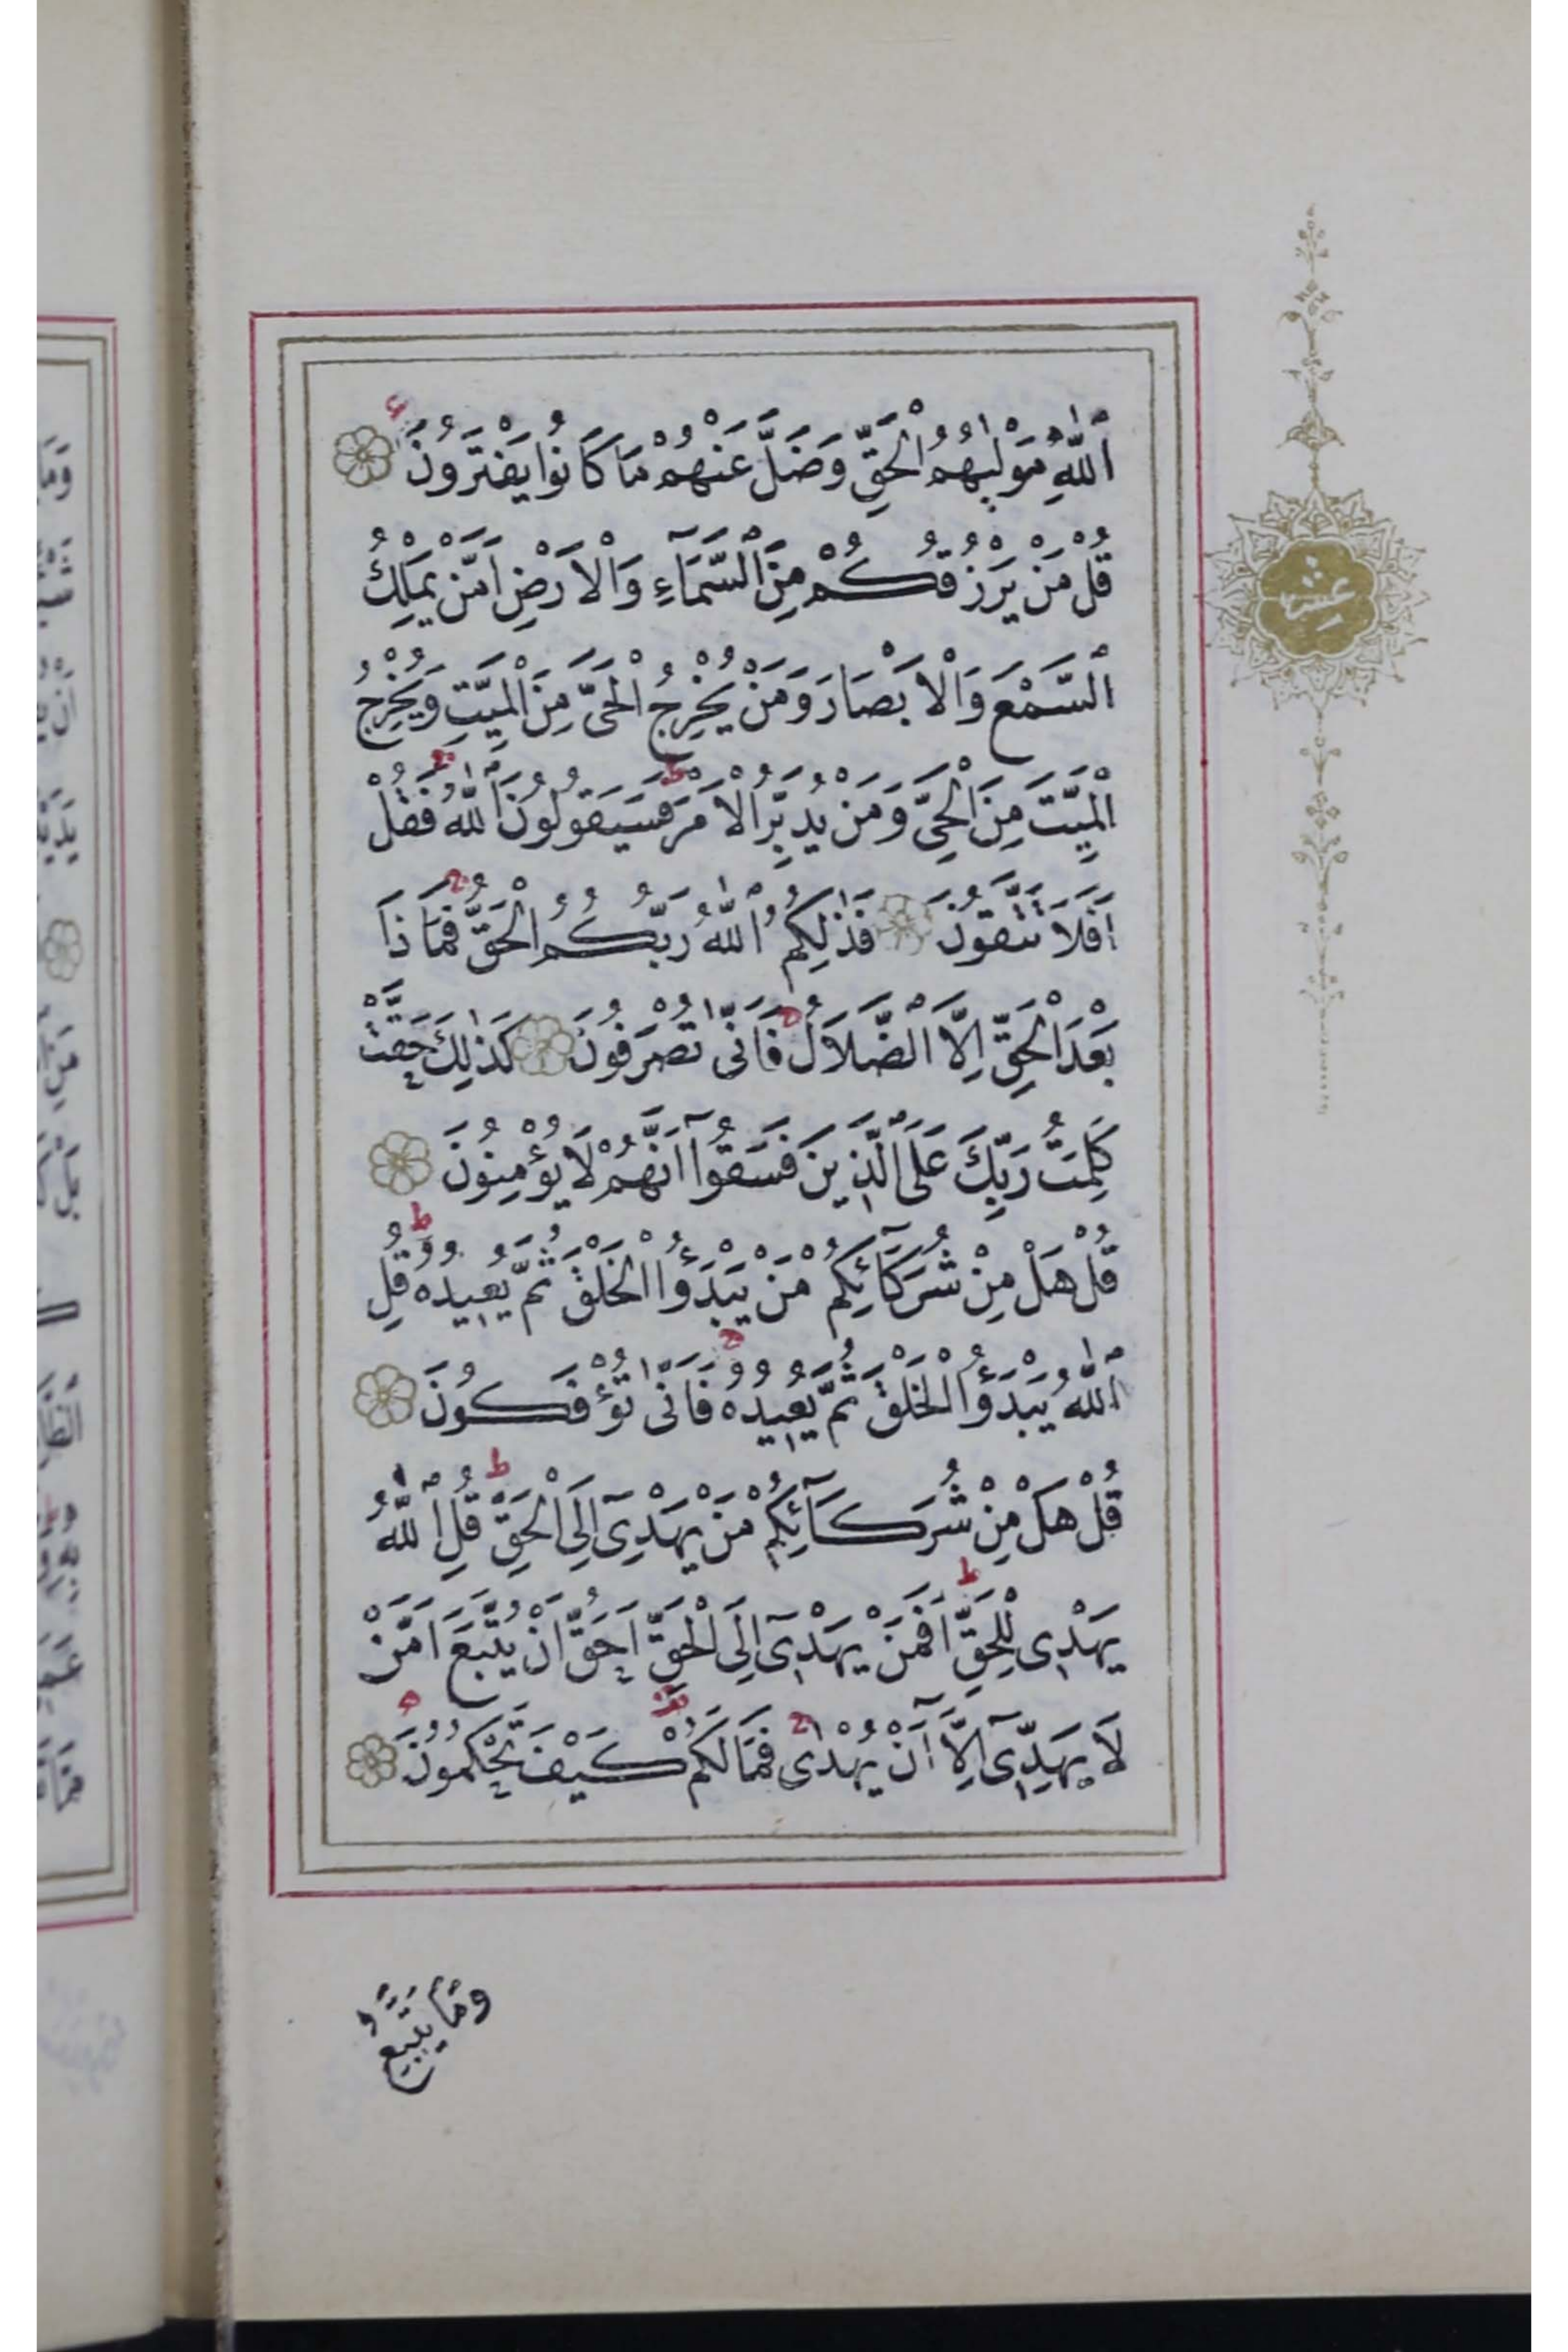 ٱللّٰهِ مَوْلٰيهُمُ الْحَقِّ وَضَلَّ عَنْهُمْ مَا كَانُوا يَفْتَرُونَ
قُلْ مَنْ يَرْزُقُكُمْ مِنَ السَّمَآءِ وَالْاَرْضِ اَمَّنْ يَمْلِكُ
السَّمْعَ وَالْاَبْصَارَ وَمَنْ يُخْرِجُ الْحَىَّ مِنَ الْمَيِّتِ وَيُخْرِجُ
الْمَيِّتَ مِنَ الْحَىِّ وَمَنْ يُدَبِّرُ الْاَمْرَ فَسَيَقُولُونَ اللّٰهُ فَقُلْ
اَفَلَا تَتَّقُونَ فَذٰلِكُمُ اللّٰهُ رَبُّكُمُ الْحَقُّ فَمَاذَا
بَعْدَ الْحَقِّ اِلَّا الضَّلَالُ فَاَنّٰى تُصْرَفُونَ كَذٰلِكَ حَقَّتْ
كَلِمَتُ رَبِّكَ عَلَى الَّذِينَ فَسَقُوٓا اَنَّهُمْ لَا يُؤْمِنُونَ
قُلْ هَلْ مِنْ شُرَكَآئِكُمْ مَنْ يَبْدَؤُا الْخَلْقَ ثُمَّ يُعِيدُهُ قُلِ
اللّٰهُ يَبْدَؤُا الْخَلْقَ ثُمَّ يُعِيدُهُ فَاَنّٰى تُؤْفَكُونَ
قُلْ هَلْ مِنْ شُرَكَآئِكُمْ مَنْ يَهْدِىٓ اِلَى الْحَقِّ قُلِ اللّٰهُ
يَهْدِى لِلْحَقِّ اَفَمَنْ يَهْدِىٓ اِلَى الْحَقِّ اَحَقُّ اَنْ يُتَّبَعَ اَمَّنْ
لَا يَهِدِّىٓ اِلَّآ اَنْ يُهْدٰى فَمَا لَكُمْ كَيْفَ تَحْكُمُونَ
وَمَا يَتَّبِعُ
عشر